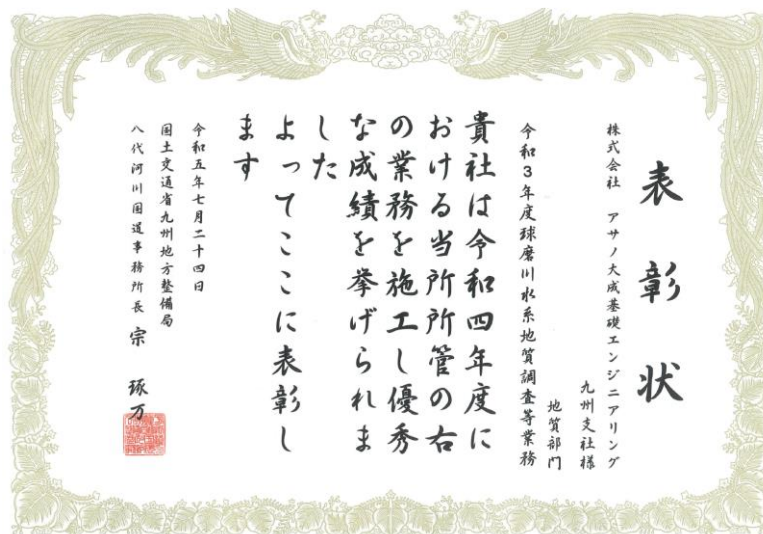 表彰状
株式会社 アサノ大成基礎エンジニアリング
九州支社様
地質部門
令和3年度球磨川水系地質調査等業務
貴社は令和四年度に
おける当所所管の右
の業務を施工し優秀
な成績を挙げられま
した
よってここに表彰し
ます
令和五年七月二十四日
国土交通省九州地方整備局
八代河川国道事務所長 宗 琢万